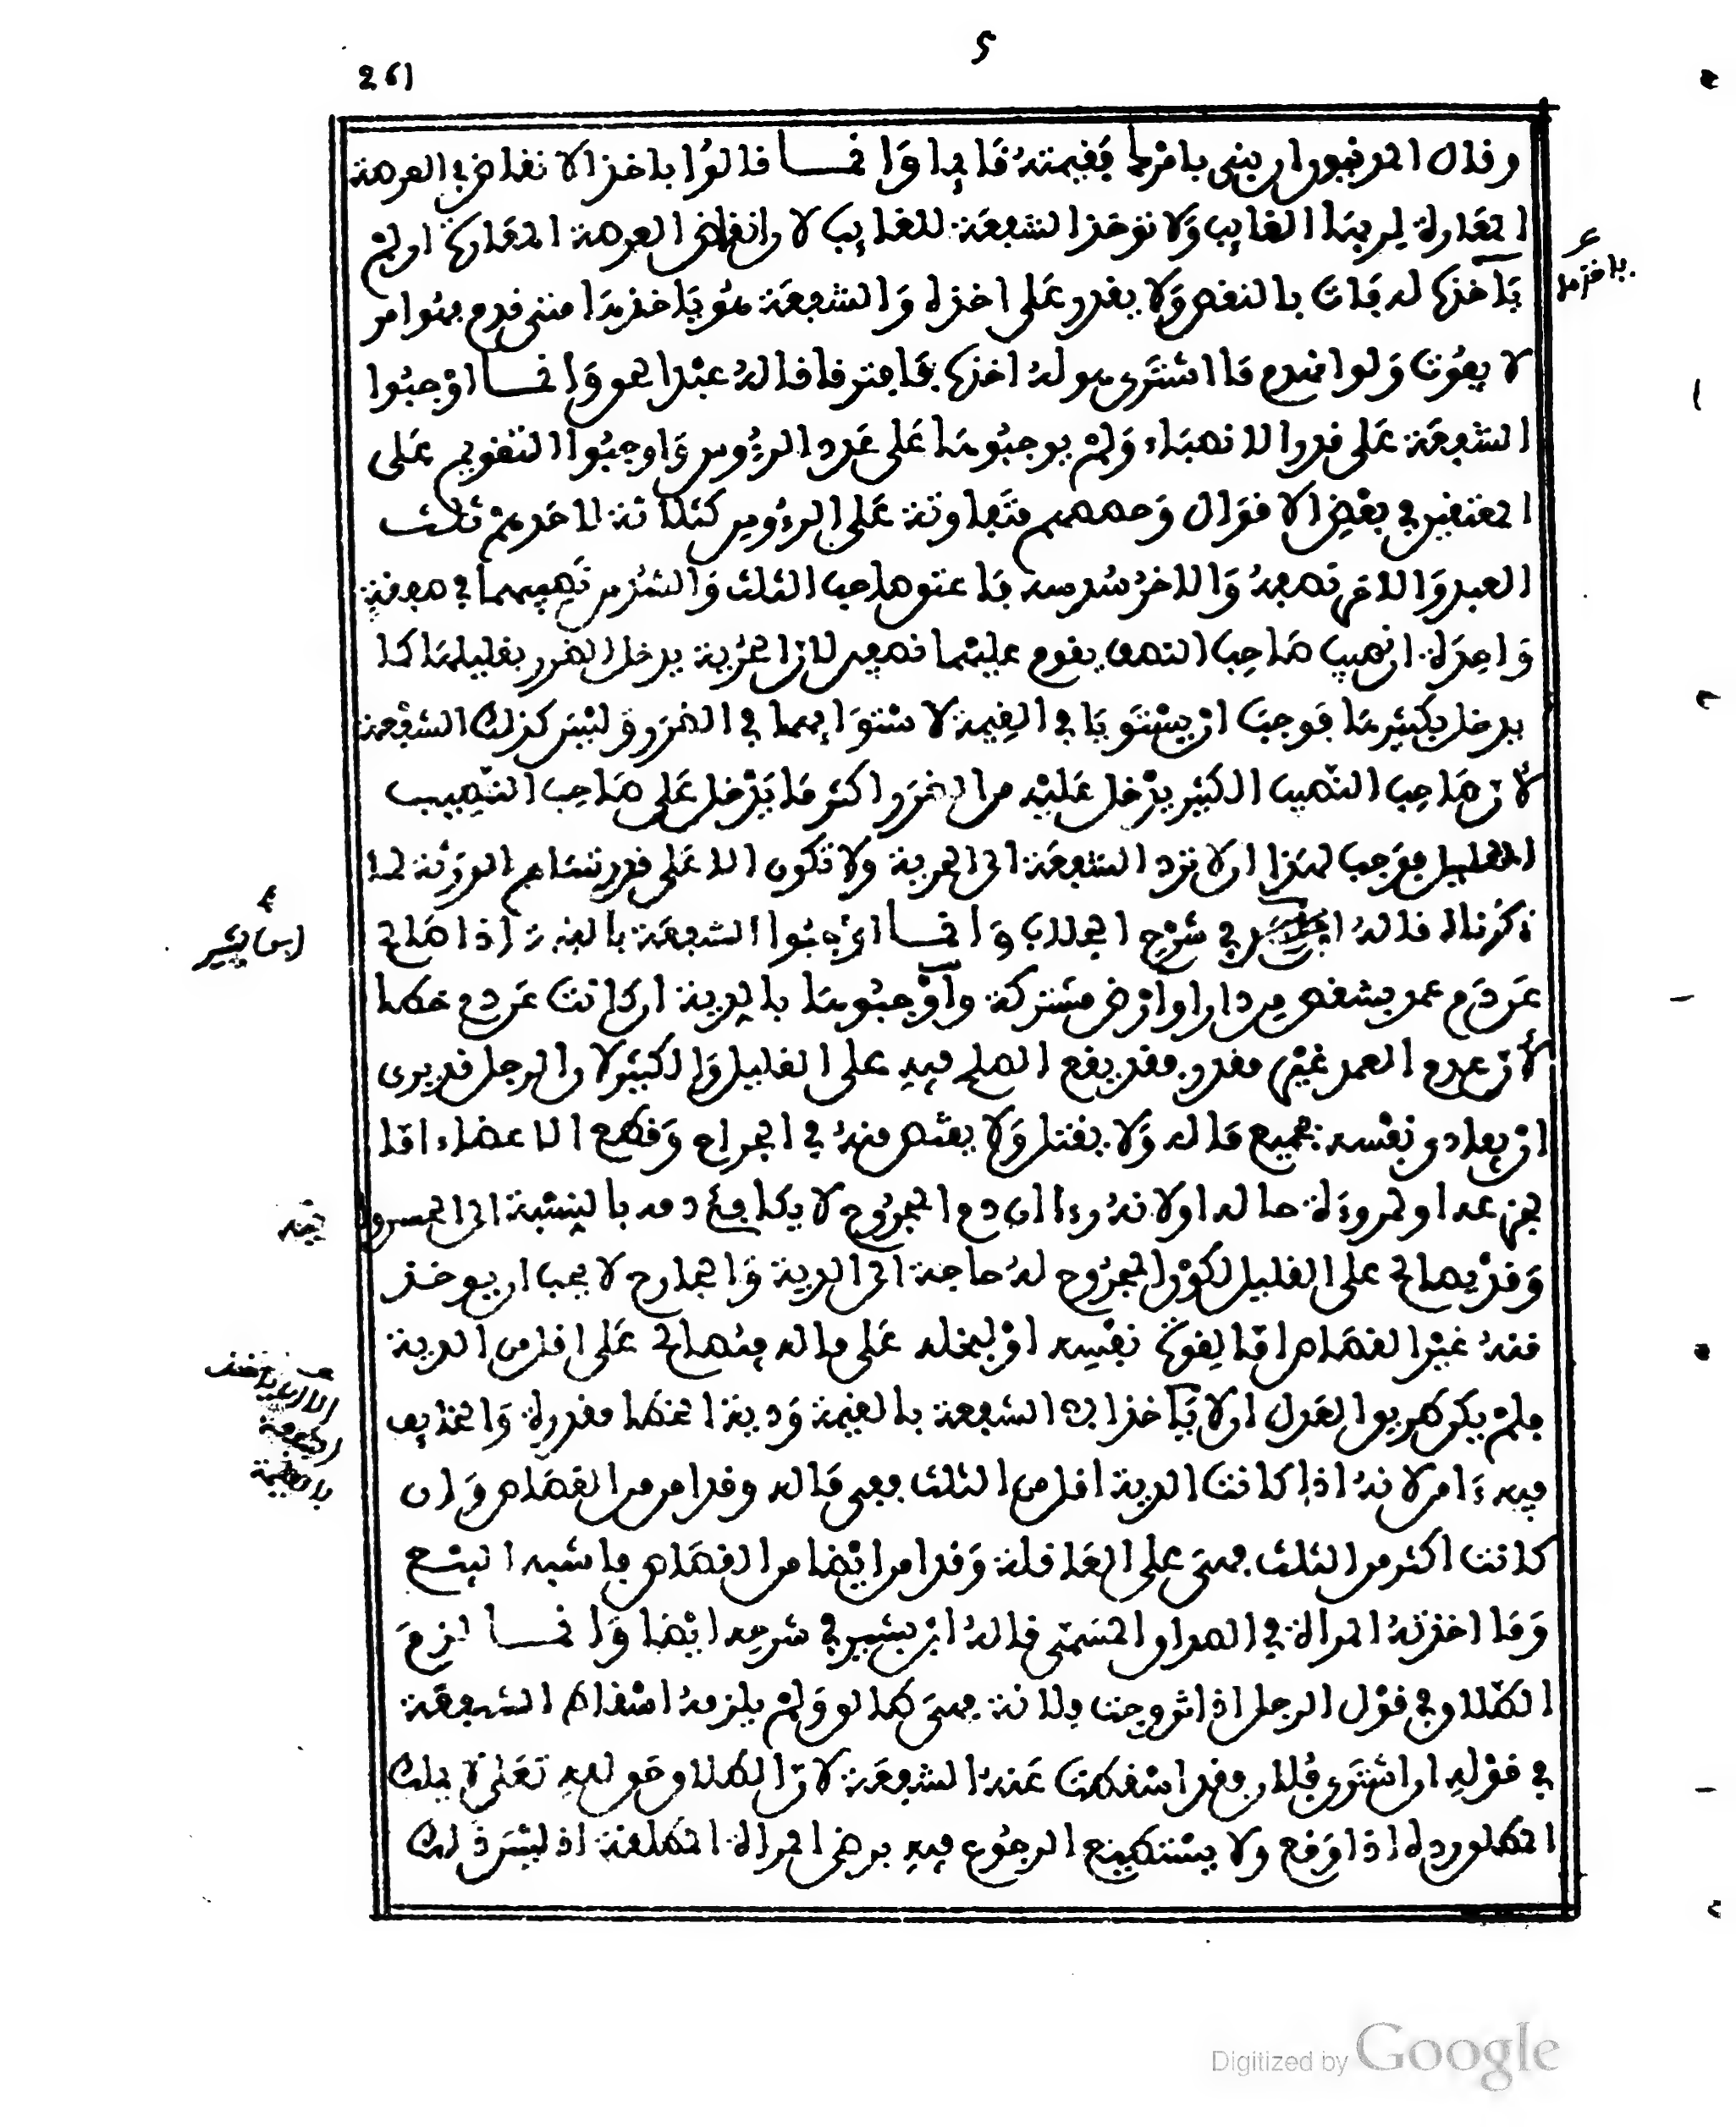 261
5
وقال المرغبون ان بنى بامرها فقيمته قايما وانما قالوا باخذ الانقاض في العرصة
المعارة لربها الغايب ولا تؤخذ الشفعة للغايب لان انقاض العرصة المعارة ان لم
ياخذها له فات بالنقص ولا يقدر على اخذه والشفعة هو ياخذها متى قدم فهو امر
لا يفوت ولو انهدم ما اشترى هو له اخذها فافترقا قاله عبد الحق وانما اوجبوا
الشفعة على قدر الانصباء ولم يوجبوها على عدد الرؤوس واوجبوا التقويم على
المعتقين في بعض الاقوال وحصصهم متفاوتة على الرؤوس كثلاثة لاحدهم ثلث
العبد والاخر نصفه والاخر سدسه فاعتق صاحب الثلث والسدس نصيبهما في صفقة
واحدة ان نصيب صاحب النصف يقوم عليهما نصفين لان الحرية يدخل الضرر بقليلها كما
يدخل بكثيرها فوجب ان يستويا في القيمة لاستوايهما في الضرر وليس كذلك الشفعة
لان صاحب النصيب الكثير يدخل عليه من الضرر اكثر ما يدخل على صاحب النصيب
القليل فوجب لهذا ان لا ترد الشفعة الى الحرية ولا تكون الا على قدر تساهم الورثة لما
ذكرناه قاله في شرح الجلاب وانما اوجبوا الشفعة بالقيمة اذا صالح
عن دم عمد بشقص من دار او ارض مشتركة واوجبوها بالدية ان كانت عن دم خطا
لان عدم العمد غير مقدر فقد يقع الصلح فيه على القليل والكثير لان الرجل قد يرى
ان يفادي نفسه بجميع ماله ولا يقتل ولا يقتص منه في الجراح وقطع الاعضاء اما
لجزعه او لمروءة حاله او لانه رءا ان دم المجروح لا يكافئ دمه بالنسبة الى
وقد يصالح على القليل لكون المجروح له حاجة الى الدية والجارح لا يجب ان يوخذ
منه غير القصاص اما لقوة نفسه او لبخله على ماله فيصالح على اقل من الدية
فلم يكن طريق العدل ان لا ياخذ الا الشفعة بالقيمة ودية الخطا مقدرة والخايف
فيه ءامن لانه اذا كانت الدية اقل من الثلث ففي ماله وقد امن من القصاص وان
كانت اكثر من الثلث فهي على العاقلة وقد امن ايضا من القصاص فاشبه البيع
وما اخذته المراة في الصداق المسمى قاله ابن بشير في شرحه ايضا وانما لزم
الطلاق في قول الرجل اذا تزوجت فلانة فهي طالق ولم يلزمه اسقاط الشفعة
في قوله ان اشترى فلان فقد اسقطت عنه الشفعة لان الطلاق حق لله تعلى لا يملك
المطلق رده اذا وقع ولا يستطيع الرجوع فيه برضى المراة المطلقة اذ ليس ذلك
ياخذها
ابن بشير
الا ان ياخذ
الشفعة
بالقيمة
Digitized by Google